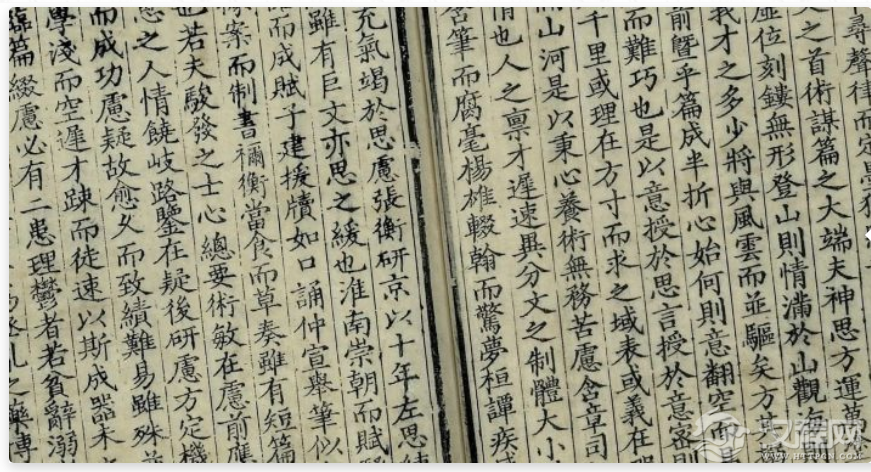 尋聲律而定
之首術謀篇之大端夫神思方運萬
虛位刻鏤無形登山則情滿於山觀海
我才之多少將與風雲而並驅矣方
前暨乎篇成半折心始何則意翻空而
而難巧也是以意授於思言授於意密則
千里或理在方寸而求之域表或義在
而山河是以秉心養術無務苦慮含章司
情也人之禀才遲速異分文之制體大小
含筆而腐毫楊雄輟翰而驚夢桓譚疾感
充氣竭於思慮張衡研京以十年左思練
雖有巨文亦思之緩也淮南崇朝而賦
而成賦子建援牘如口誦仲宣舉筆似
案而制書禰衡當食而草奏雖有短篇
也若夫駿發之士心總要術敏在慮前應
思之人情饒岐路鑒在疑後研慮方定機
而成功慮疑故愈久而致績難易雖殊並
學淺而空遲才疎而徒速以斯成器未
臨篇綴慮必有二患理鬱者若貧辭溺
之藥博
汉程网
HTTPCN.COM